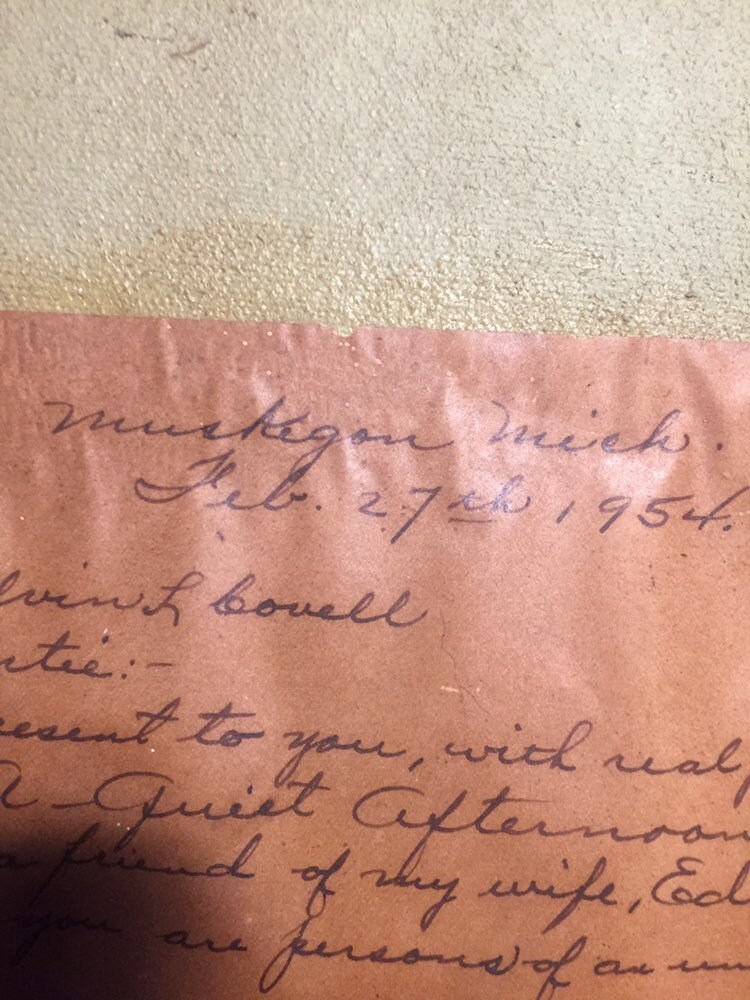 Muskegon Mich.
Feb. 27th, 1954.
lvin L Covell
tie:-
esent to you, with real
A Quiet Afternoon
a friend of my wife, Ed
you are persons of an un